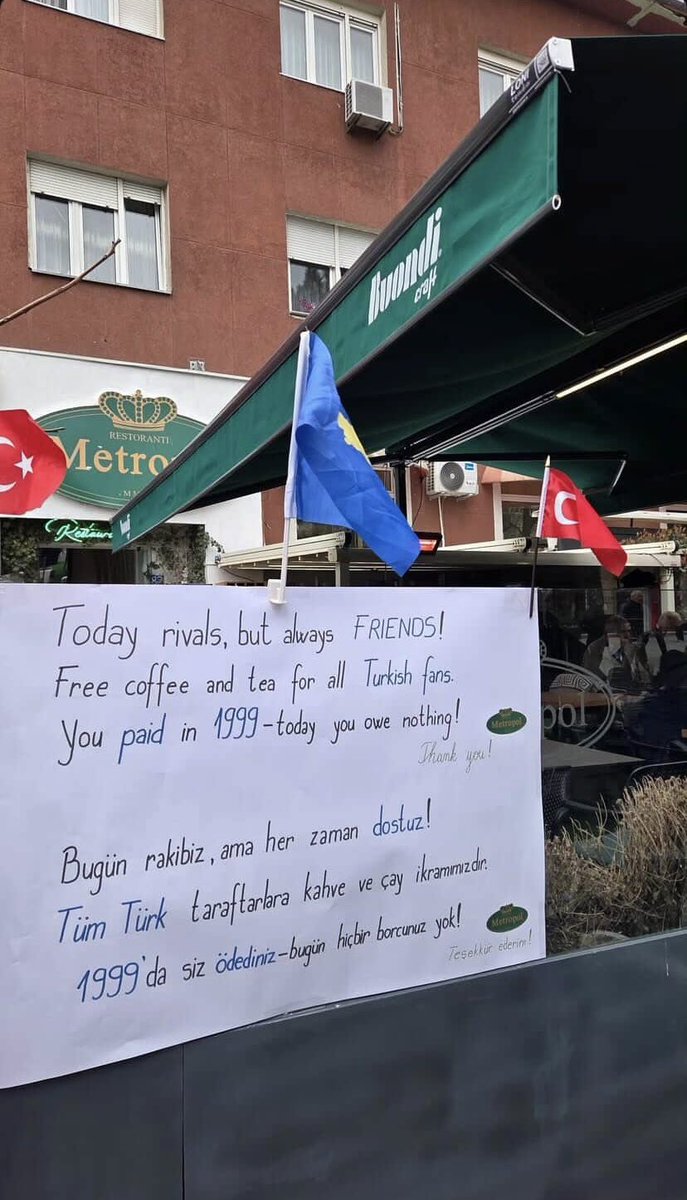 Buondi
craft
RESTORANTI
Metropo
Restaur
Today rivals, but always FRIENDS!
Free coffee and tea for all Turkish fans.
You paid in 1999-today you owe nothing!
Metropol
Thank you!
Bugün rakibiz, ama her zaman dostuz!
Tüm Türk taraftarlara kahve ve çay ikramımızdır.
1999'da siz ödediniz-bugün hiçbir borcunuz yok!
Metropol
Teşekkür ederim!
pol